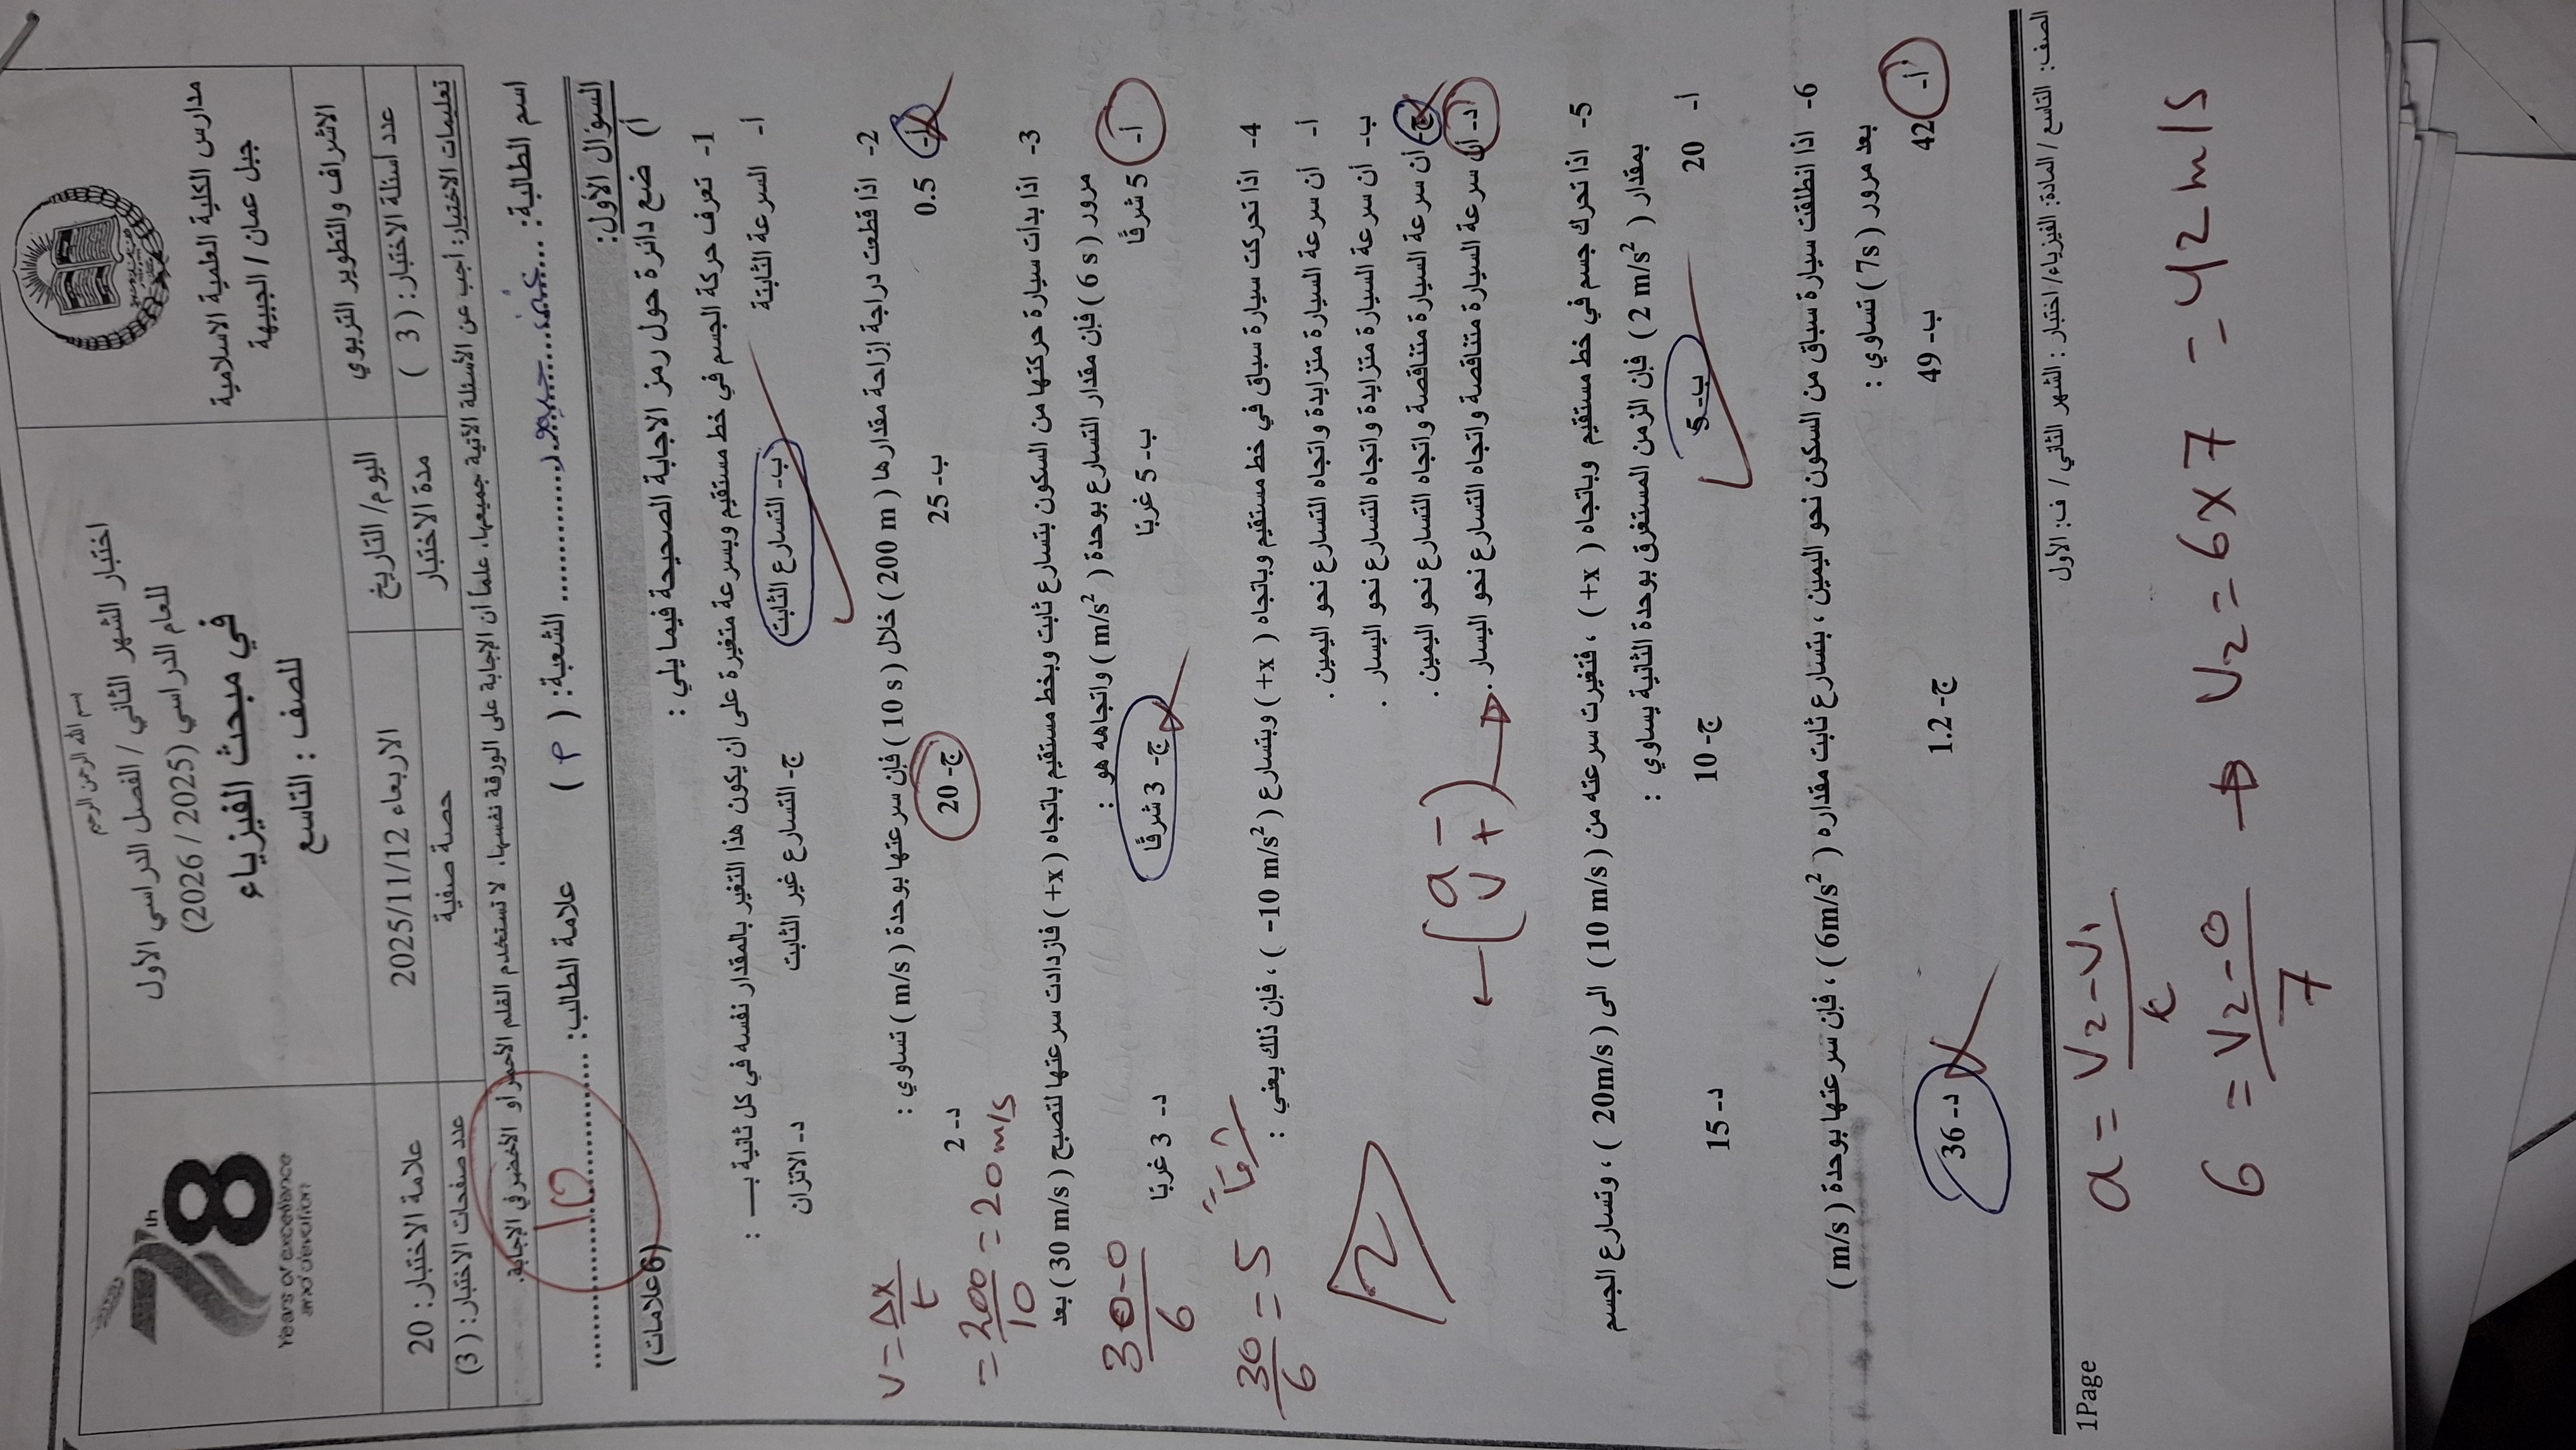 بسم الله الرحمن الرحيم
مدارس الكلية العلمية الاسلامية
جبل عمان / الجبيهة
اختبار الشهر الثاني / الفصل الدراسي الأول
للعام الدراسي (2025 / 2026)
في مبحث الفيزياء
للصف : التاسع
78th
Years of excellence
and devotion
الاشراف والتطوير التربوي
اليوم/ التاريخ
الاربعاء 2025/11/12
علامة الاختبار : 20
عدد أسئلة الاختبار: ( 3 )
مدة الاختبار
حصة صفية
عدد صفحات الاختبار: ( 3 )
تعليمات الاختبار: أجب عن الأسئلة الآتية جميعها، علماً أن الإجابة على الورقة نفسها، لا تستخدم القلم الأحمر أو الأخضر في الإجابة.
اسم الطالبة: الشعبة: ( م ) علامة الطالب:
السؤال الأول:
(6علامات)
أ) ضع دائرة حول رمز الاجابة الصحيحة فيما يلي :
1- تعرف حركة الجسم في خط مستقيم وبسرعة متغيرة على أن يكون هذا التغير بالمقدار نفسه في كل ثانية بـ :
أ- السرعة الثابتة ب- التسارع الثابت ج- التسارع غير الثابت د- الاتزان
2- اذا قطعت دراجة إزاحة مقدارها ( 200 m ) خلال ( 10 s ) فإن سرعتها بوحدة ( m/s ) تساوي :
أ- 0.5 ب- 25 ج- 20 د- 2
v = Δx/t
= 200/10 = 20 m/s
3- اذا بدأت سيارة حركتها من السكون بتسارع ثابت وبخط مستقيم باتجاه ( +x ) فازدادت سرعتها لتصبح ( 30 m/s ) بعد
مرور ( 6 s ) فإن مقدار التسارع بوحدة ( m/s² ) واتجاهه هو :
أ- 5 شرقًا ب- 5 غربًا ج- 3 شرقًا د- 3 غربًا
30-0/6
30/6 = 5 شرقاً
4- اذا تحركت سيارة سباق في خط مستقيم وباتجاه ( +x ) وبتسارع ( -10 m/s² ) ، فإن ذلك يعني :
أ- أن سرعة السيارة متزايدة واتجاه التسارع نحو اليمين .
ب- أن سرعة السيارة متزايدة واتجاه التسارع نحو اليسار .
ج- أن سرعة السيارة متناقصة واتجاه التسارع نحو اليمين .
د- أن سرعة السيارة متناقصة واتجاه التسارع نحو اليسار .
a -
v +
5- اذا تحرك جسم في خط مستقيم وباتجاه ( +x ) ، فتغيرت سرعته من ( 10 m/s ) الى ( 20m/s ) ، وتسارع الجسم
بمقدار ( 2 m/s² ) فإن الزمن المستغرق بوحدة الثانية يساوي :
أ- 20 ب- 5 ج- 10 د- 15
6- اذا انطلقت سيارة سباق من السكون نحو اليمين ، بتسارع ثابت مقداره ( 6m/s² ) ، فإن سرعتها بوحدة ( m/s )
بعد مرور ( 7s ) تساوي :
أ- 42 ب- 49 ج- 1.2 د- 36
الصف: التاسع / المادة: الفيزياء/ اختبار : الشهر الثاني / ف: الأول
1Page
a = v₂-v₁/t
6 = v₂-0/7 → v₂ = 6x7 = 42 m/s